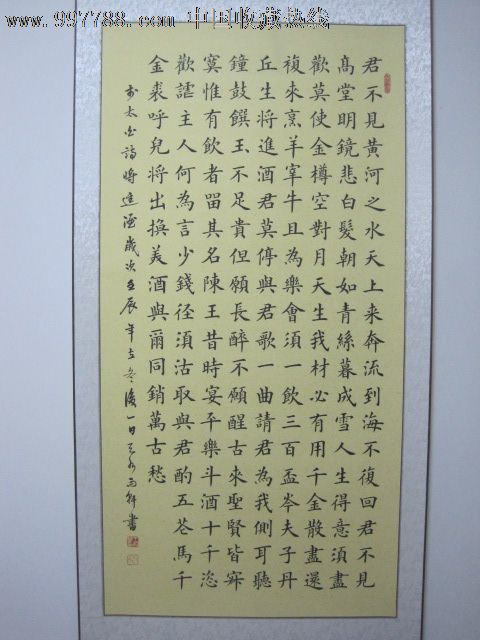 www.997788.com 中国收藏热线
君不見黃河之水天上来奔流到海不復回君不見
高堂明鏡悲白髮朝如青絲暮成雪人生得意須盡
歡莫使金樽空對月天生我材必有用千金散盡還
複來烹羊宰牛且為樂會須一飲三百盃岑夫子丹
丘生將進酒君莫停與君歌一曲請君為我側耳聽
鐘鼓饌玉不足貴但願長醉不願醒古来聖賢皆寂
寞惟有飲者留其名陳王昔時宴平樂斗酒十千恣
歡謔主人何為言少錢径須沽取與君酌五花馬千
金裘呼兒將出換美酒與爾同銷萬古愁
書太白詩將進酒歲次壬辰年立冬後一日書